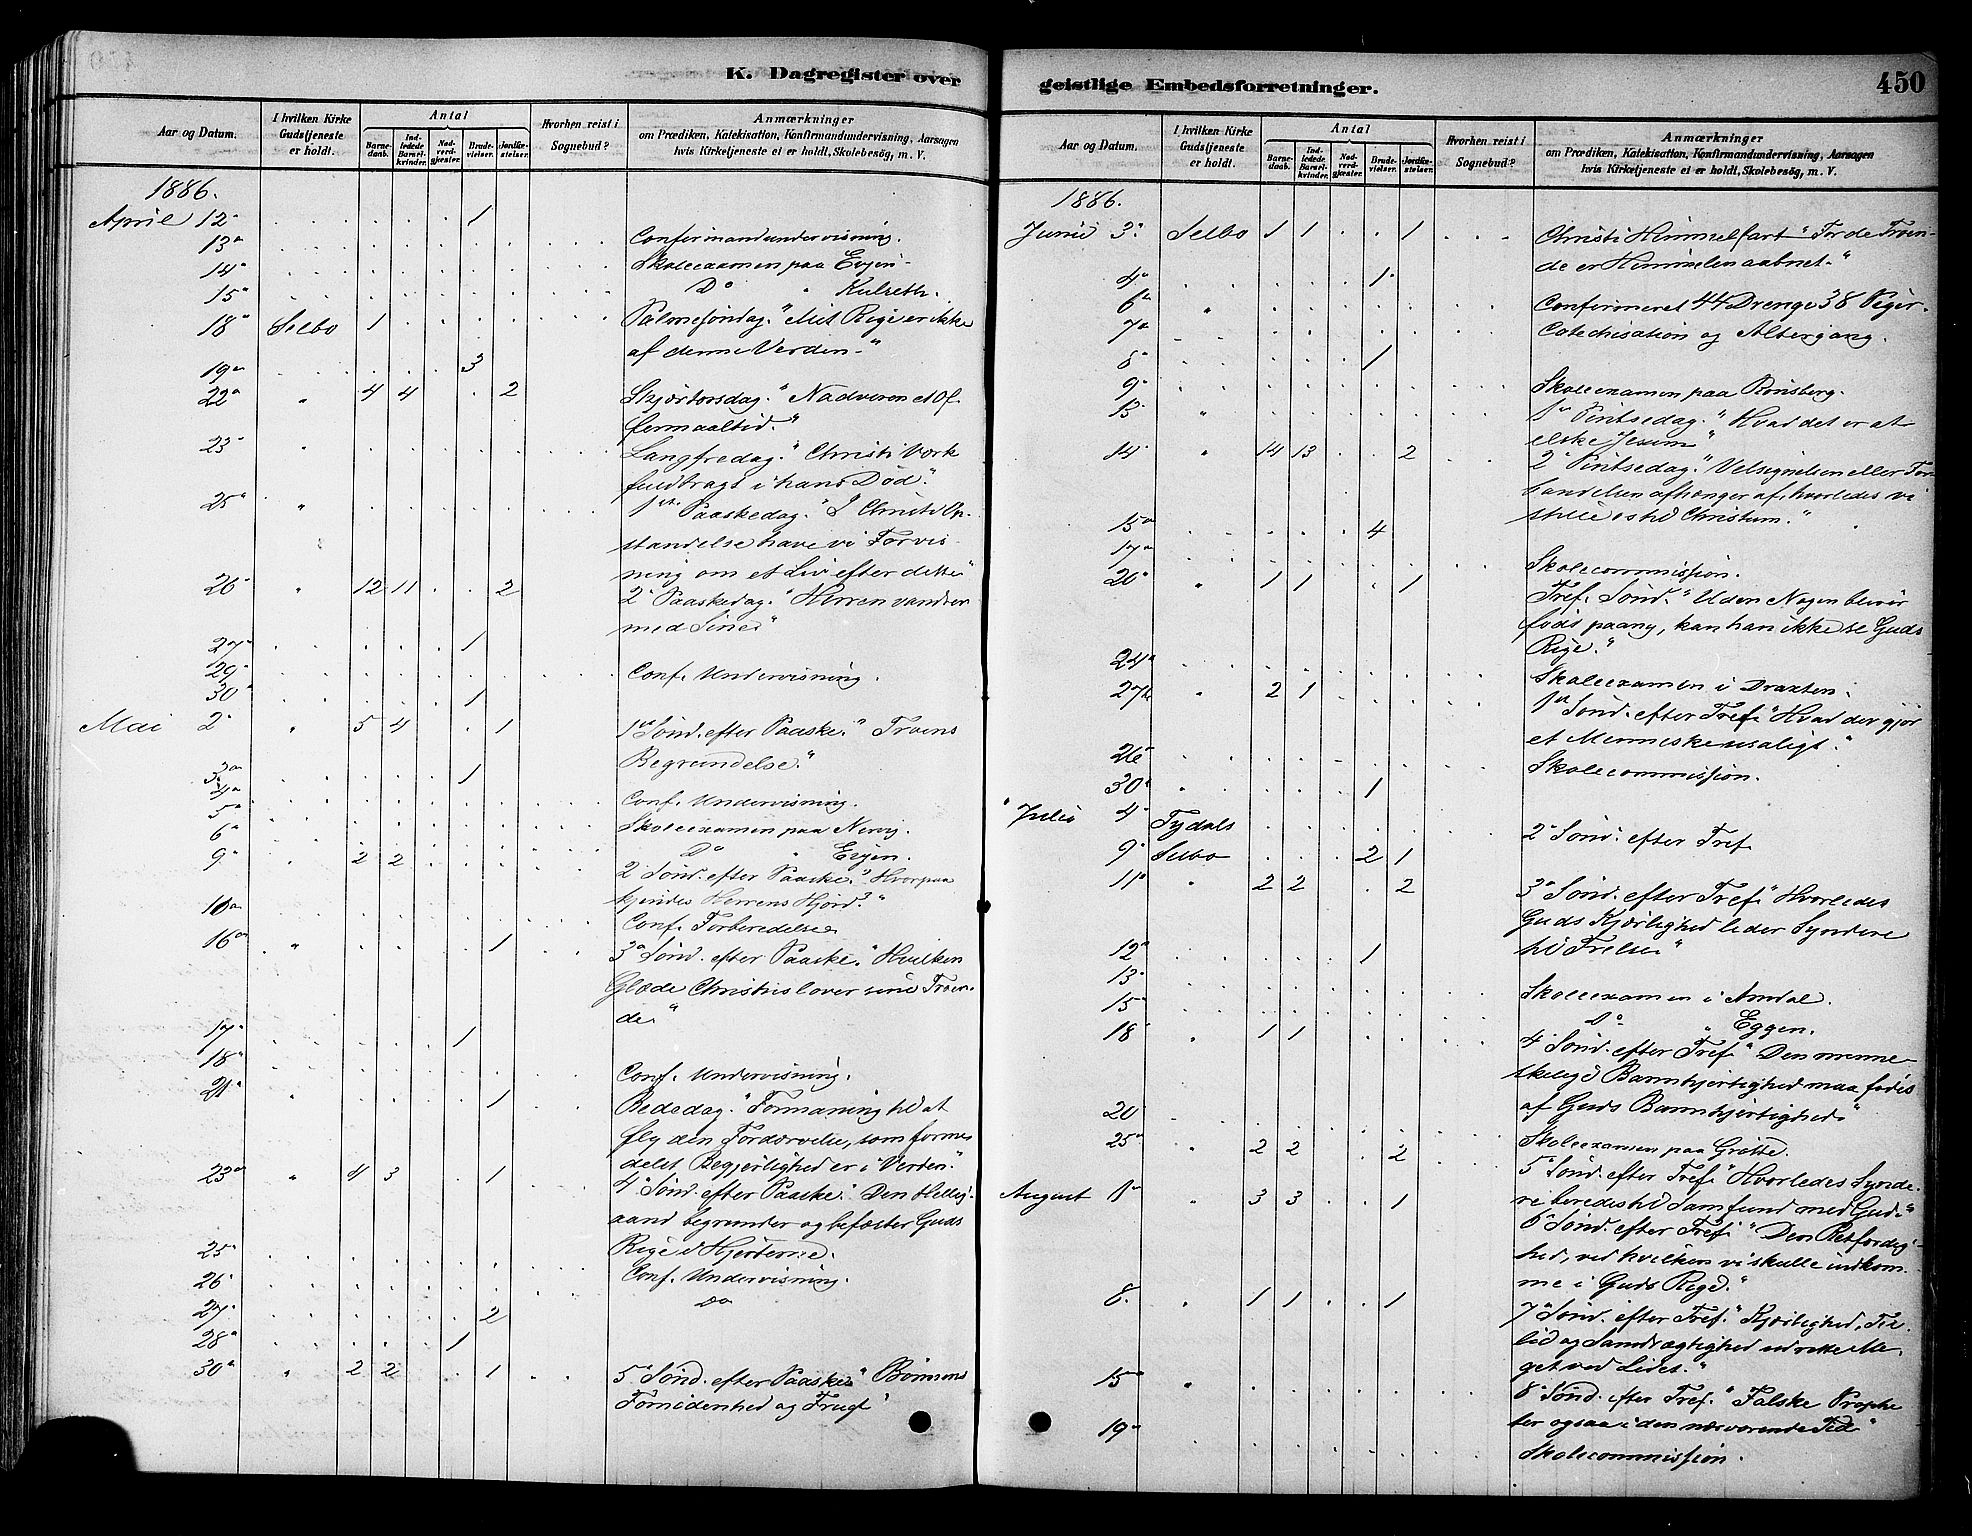 K. Dagregister over
Aar og Datum.
I hvilken Kirke Gudstjeneste er holdt.
Antal
Barnedaab.
Indledede Barselkvinder.
Nadverdgjester.
Brudevielser.
Jordfæstelser.
Hvorhen reist i Sognebud?
Anmærkninger
om Prædiken, Katekisation, Konfirmandundervisning, Aarsagen
hvis Kirketjeneste ei er holdt, Skolebesøg, m. V.
1886.
April 12 1
13 Confirmandundervisning.
14 Skoleexamen paa Evjen
15 Do " Kulseth.
18 Selbo 1 Palmesøndag. "Mit Rige er ikke
af denne Verden"
19 3
22 " 4 4 2 Skjærtorsdag. "Nadveren et Of-
fermaaltid."
23 " Langfredag. "Christi Værk
fuldbragt i hans Død".
25 " 1ste Paaskedag. "I Christi Op-
standelse have vi Forvis-
ning om et Liv efter dette"
26 " 12 11 2 2 Paaskedag. "Herren vandrer
med Sine"
27 1
29 Conf. Undervisning.
30 1
Mai 2 " 5 4 1 1ste Sønd. efter Paaske. "Troens
Begrundelse."
3 1
4 Conf. Undervisning.
5 Skoleexamen paa Nervig.
6 Do " Evjen.
9 " 2 2 2 Sønd. efter Paaske. "Hvorpaa
kjendes Herrens Hjord?"
10 Conf. Forberedelse
16 " 1 3 Sønd. efter Paaske. "Hvilken
Glæde Christus lover sine Troen-
de"
17 1
18 Conf. Undervisning.
21 " 1 Bededag. "Formaning til at
fly den Fordærvelse, som forme-
delst Begjerlighed er i Verden."
23 " 4 3 1 4 Sønd. efter Paaske. "Den Hellig-
aand begrunder og befæster Guds
Rige i Hjerterne.
25 Conf. Undervisning.
26 Do
27 2
28 1
30 " 2 2 1 5 Sønd. efter Paaske "Bønnens
Fornødenhed og Frugt"
geistlige Embedsforretninger.
450
Aar og Datum.
I hvilken Kirke Gudstjeneste er holdt.
Antal
Barnedaab.
Indledede Barselkvinder.
Nadverdgjester.
Brudevielser.
Jordfæstelser.
Hvorhen reist i Sognebud?
Anmærkninger
om Prædiken, Katekisation, Konfirmandundervisning, Aarsagen
hvis Kirketjeneste ei er holdt, Skolebesøg, m. V.
1886.
Junii 3 Selbo 1 1 1 Christi Himmelfart "For de Troen-
de er Himmelen aabnet."
4 1
6 " Confirmeret 44 Drenge 38 Piger
7 Catechisation og Altergang.
8 1
9 Skoleexamen paa Rønsberg.
13 " 1 Pintsedag. "Hvad det er at
elske Jesum"
14 " 14 13 2 2 Pintsedag. "Velsignelsen eller For-
bandelsen afhænger af, hvorledes vi
stille os til Christum."
15 4
17 Skolecommission.
20 " 1 1 1 Tref. Sønd. "Uden Nogen bliver
født paany, kan han ikke se Guds
Rige."
24 Skoleexamen i Draxten.
27 " 2 1 1ste Sønd. efter Tref. "Hvad der gjør
et Menneske usaligt."
26 Skolecommission.
30 " 1
Julii 4 Tydals 2 Sønd. efter Tref
9 Selbo 2 1
11 " 2 2 2 3 Sønd. efter Tref. "Hvorledes
Guds Kjærlighed leder Syndere
til Frelse"
12 1
13 Skoleexamen i Amdal.
15 Do " Eggen.
18 " 1 1 4 Sønd. efter Tref. "Den menne-
skelige Barmhjertighed maa fødes
af Guds Barmhjertighed"
20 Skoleexamen paa Grøtte.
25 " 2 2 2 5 Sønd. efter Tref. "Hvorledes Synde-
re beredes til Samfund med Gud."
August 1 " 3 3 1 6 Sønd. efter Tref. "Den Retfærdig-
hed, ved hvilken vi skulle indkom-
me i Guds Rige."
8 " 1 1 1 7 Sønd. efter Tref. "Kjærlighed, Til-
lid og Samdrægtighed udrette Me-
get ved Lidet."
15 " 8 Sønd. efter Tref. "Falske Prophe-
ter ogsaa i den nærværende Tid"
19 Skolecommission.